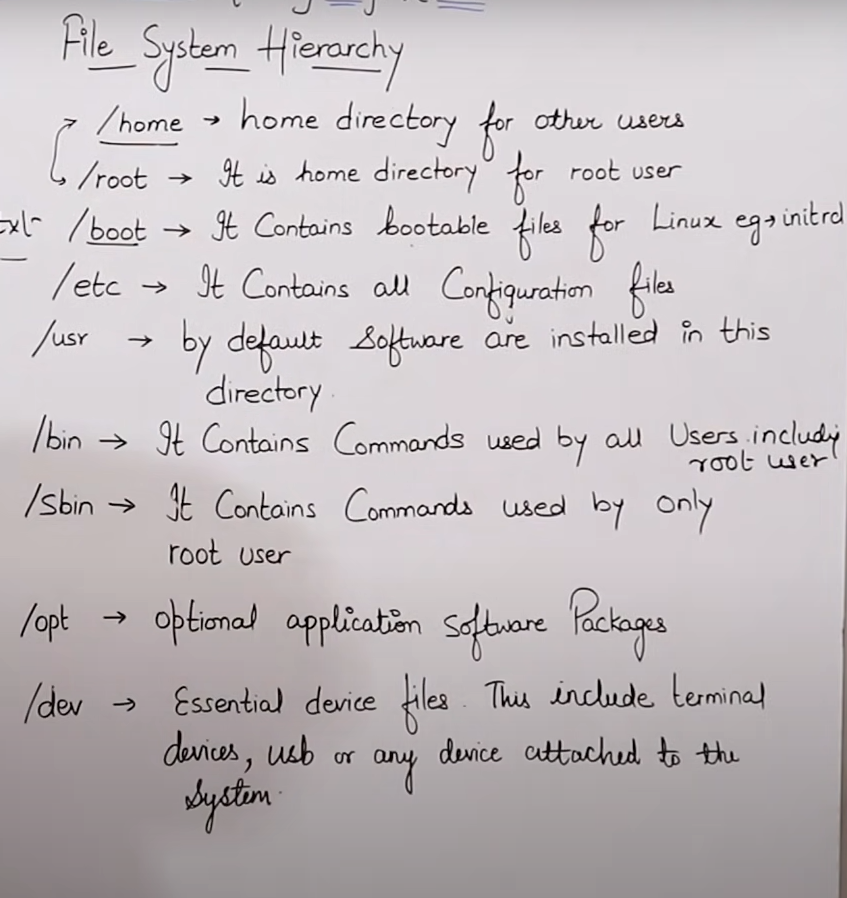 File System Hierarchy
/home → home directory for other users
/root → It is home directory for root user
/boot → It Contains bootable files for Linux eg → initrd
/etc → It Contains all Configuration files
/usr → by default Software are installed in this
directory.
/bin → It Contains Commands used by all Users including
root user
/sbin → It Contains Commands used by only
root user
/opt → optional application software Packages
/dev → Essential device files. This include terminal
devices, usb or any device attached to the
System.